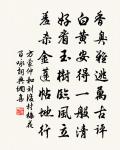 香臭難逃萬古評
白黃安得一般清
好看玉樹臨風立
羞殺金蓮帖地行
方蒙仲和劉後村梅花
百詠詞典網集